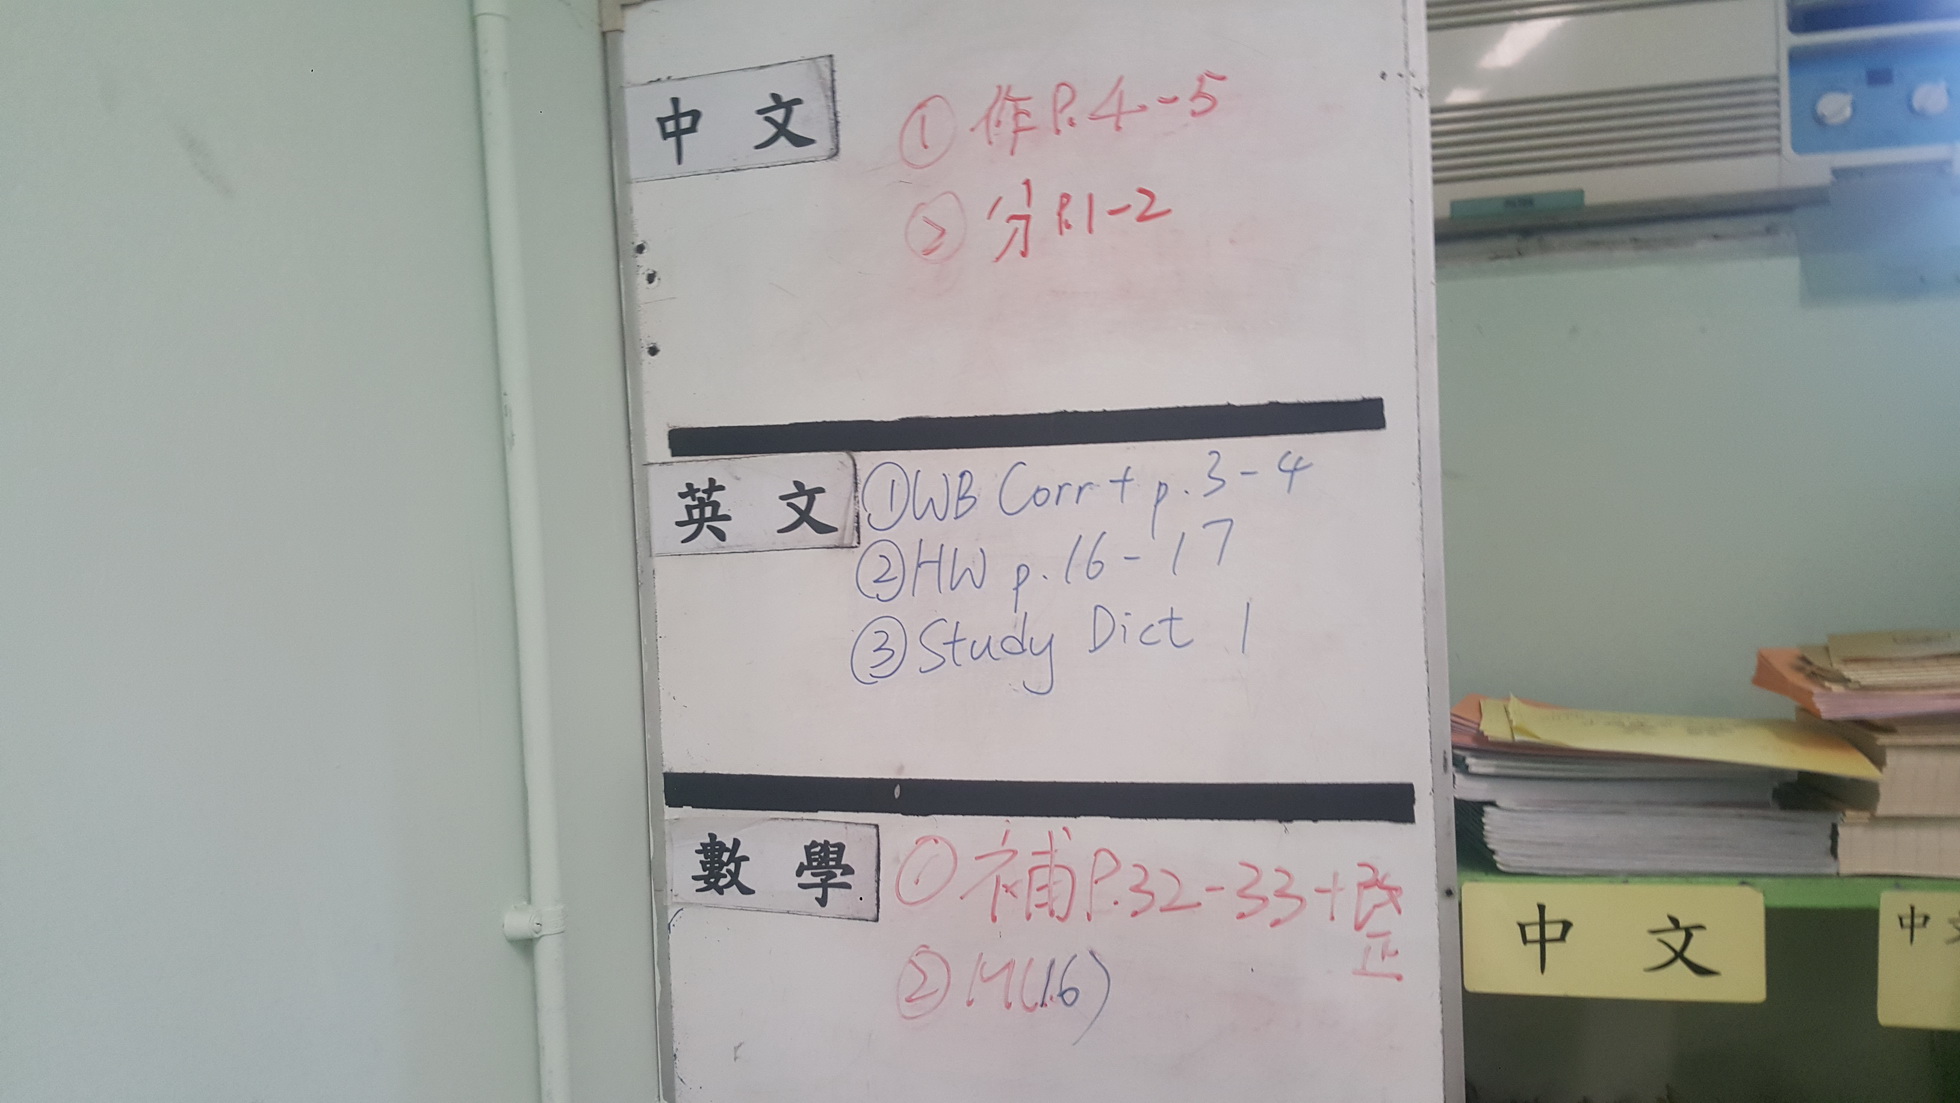 中文
① 作P.4-5
② 分P.1-2
英文
① WB Corr + p.3-4
② HW p.16-17
③ Study Dict 1
數學
① 補P.32-33+改正
② M(1.6)
中文
中文